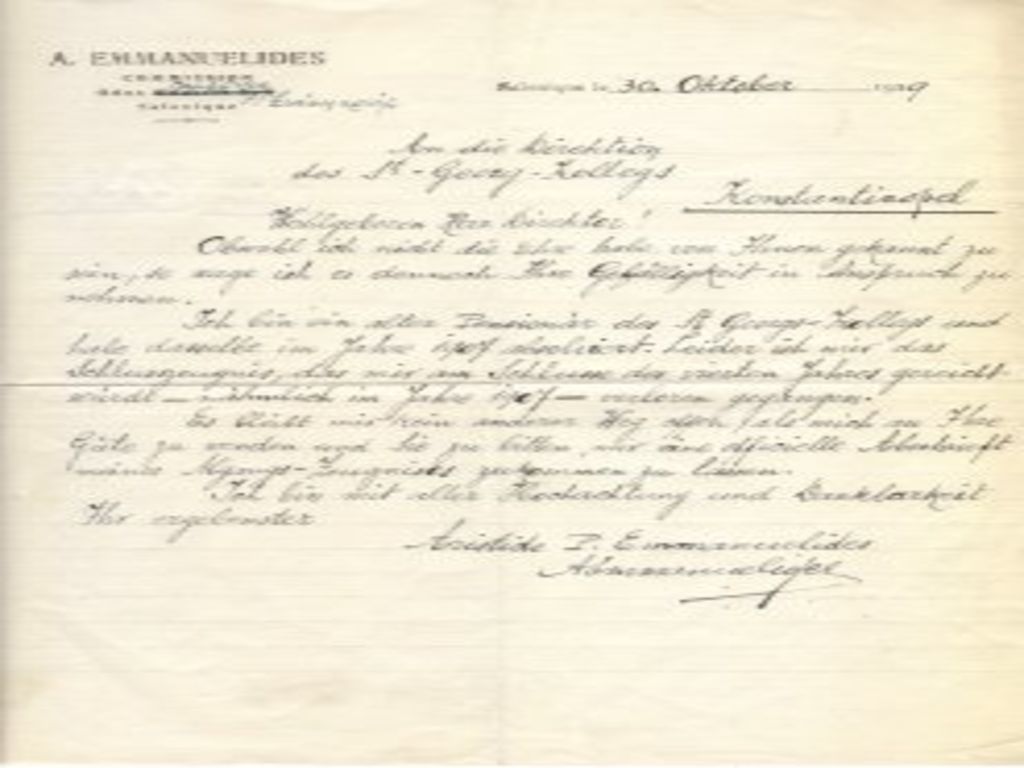 A. EMMANUELIDES
COMMISSION
Salonique
Salonique le 30. Oktober 1919
An die Direktion
des St-Georg-Kollegs
Konstantinopel
Wohlgeboren Herr Direktor!
Obwohl ich nicht die Ehre habe von Ihnen gekannt zu
sein, so wage ich es dennoch Ihre Gefälligkeit in Anspruch zu
nehmen.
Ich bin ein alter Pensionär des St Georgs-Kollegs und
habe dasselbe im Jahre 1907 absolviert. Leider ist mir das
Schlusszeugnis, das mir am Schlusse des vierten Jahres gereicht
wurde — nähmlich im Jahre 1907 — verloren gegangen.
Es bleibt mir kein anderer Weg als mich an Ihre
Güte zu wenden und Sie zu bitten, mir eine officielle Abschrift
meines Abgangs-Zeugnisses zukommen zu lassen.
Ich bin mit aller Hochachtung und Dankbarkeit
Ihr ergebenster
Aristide P. Emmanuelides